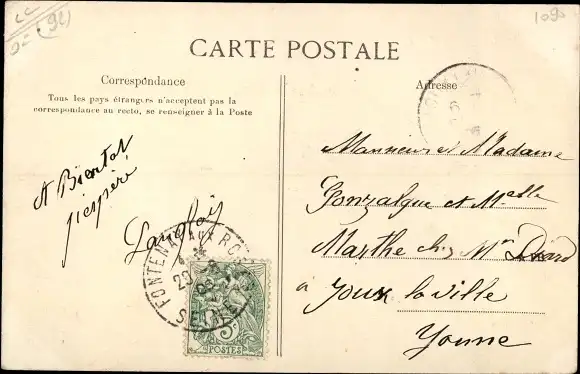 1090
(92)
CARTE POSTALE
Correspondance
Tous les pays étrangers n'acceptent pas la
correspondance au recto, se renseigner à la Poste
A Bientot
j'espère
Langlois
Adresse
Monsieur et Madame
Gonzalgue et Melle
Marthe chez Mr
à Joux la Ville
Yonne
FONTENAY AUX ROSES
23
SEINE
5c
POSTES